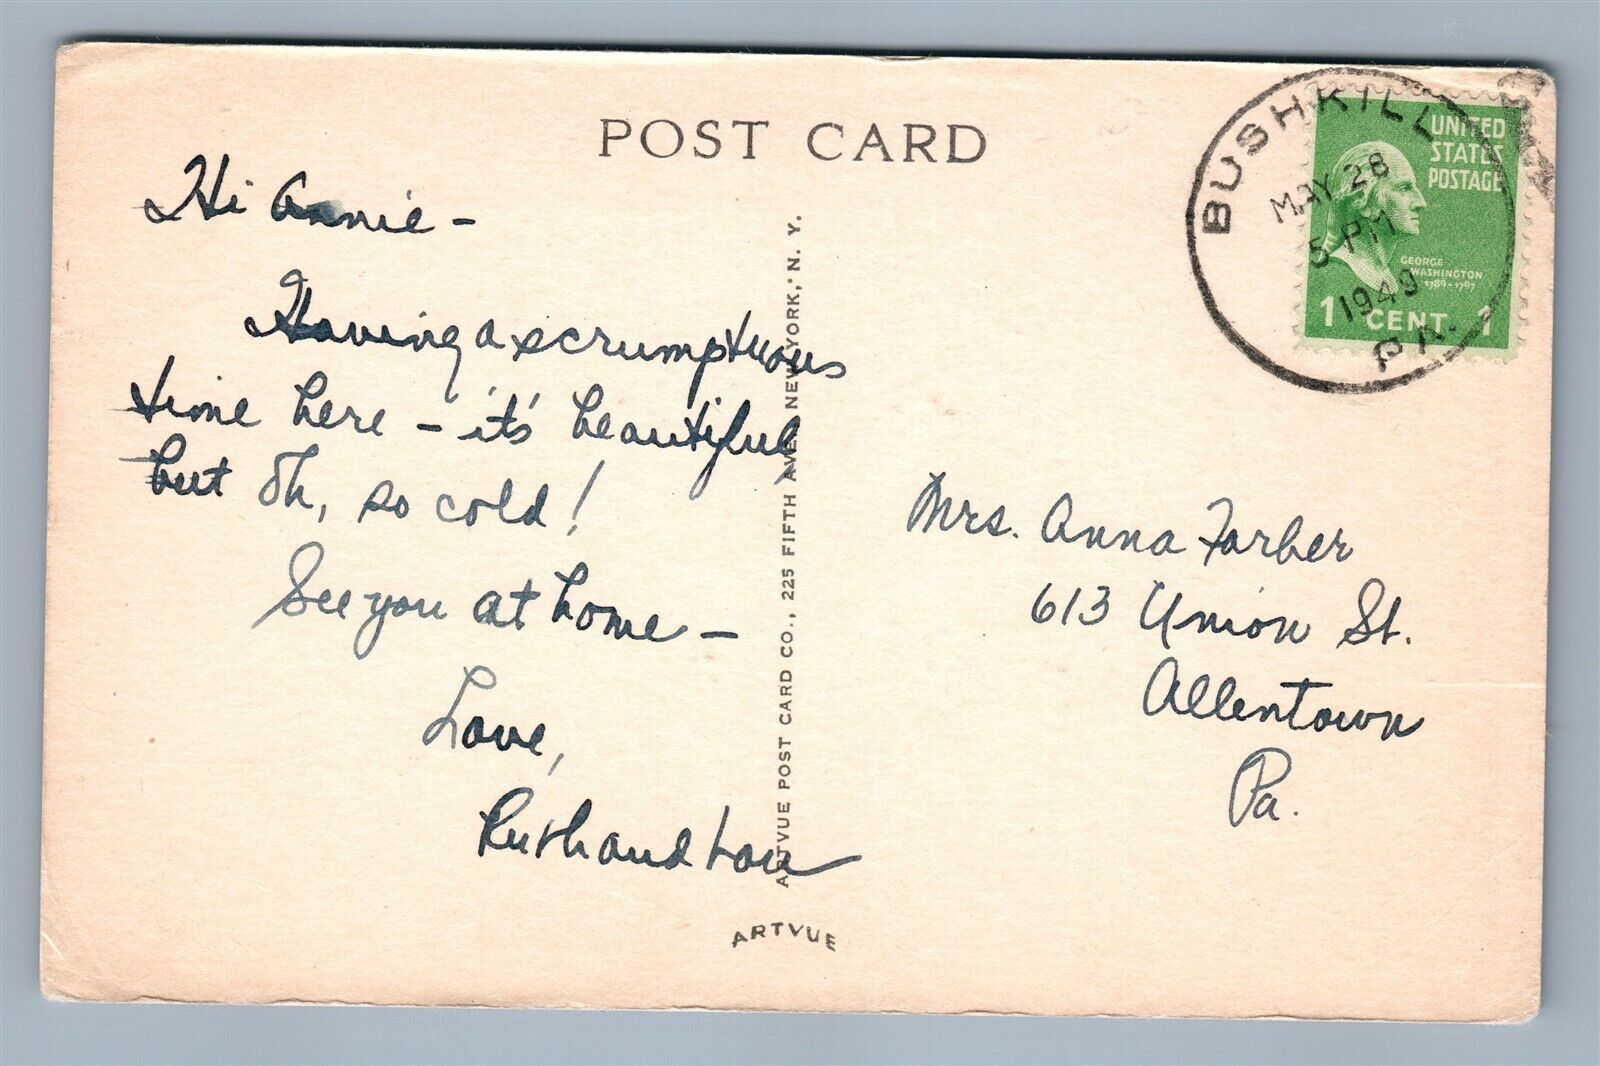 POST CARD
Hi Annie -
Having a scrumptuous
time here - it's beautiful,
but oh, so cold!
See you at home -
Love,
Ruth and Lou
ARTVUE POST CARD CO., 225 FIFTH AVE. NEW YORK, N. Y.
ARTVUE
BUSHKILL
MAY 28
5 PM
1949
PA.
UNITED
STATES
POSTAGE
GEORGE
WASHINGTON
1789-1797
1 CENT 1
Mrs. Anna Farber
613 Union St.
Allentown
Pa.